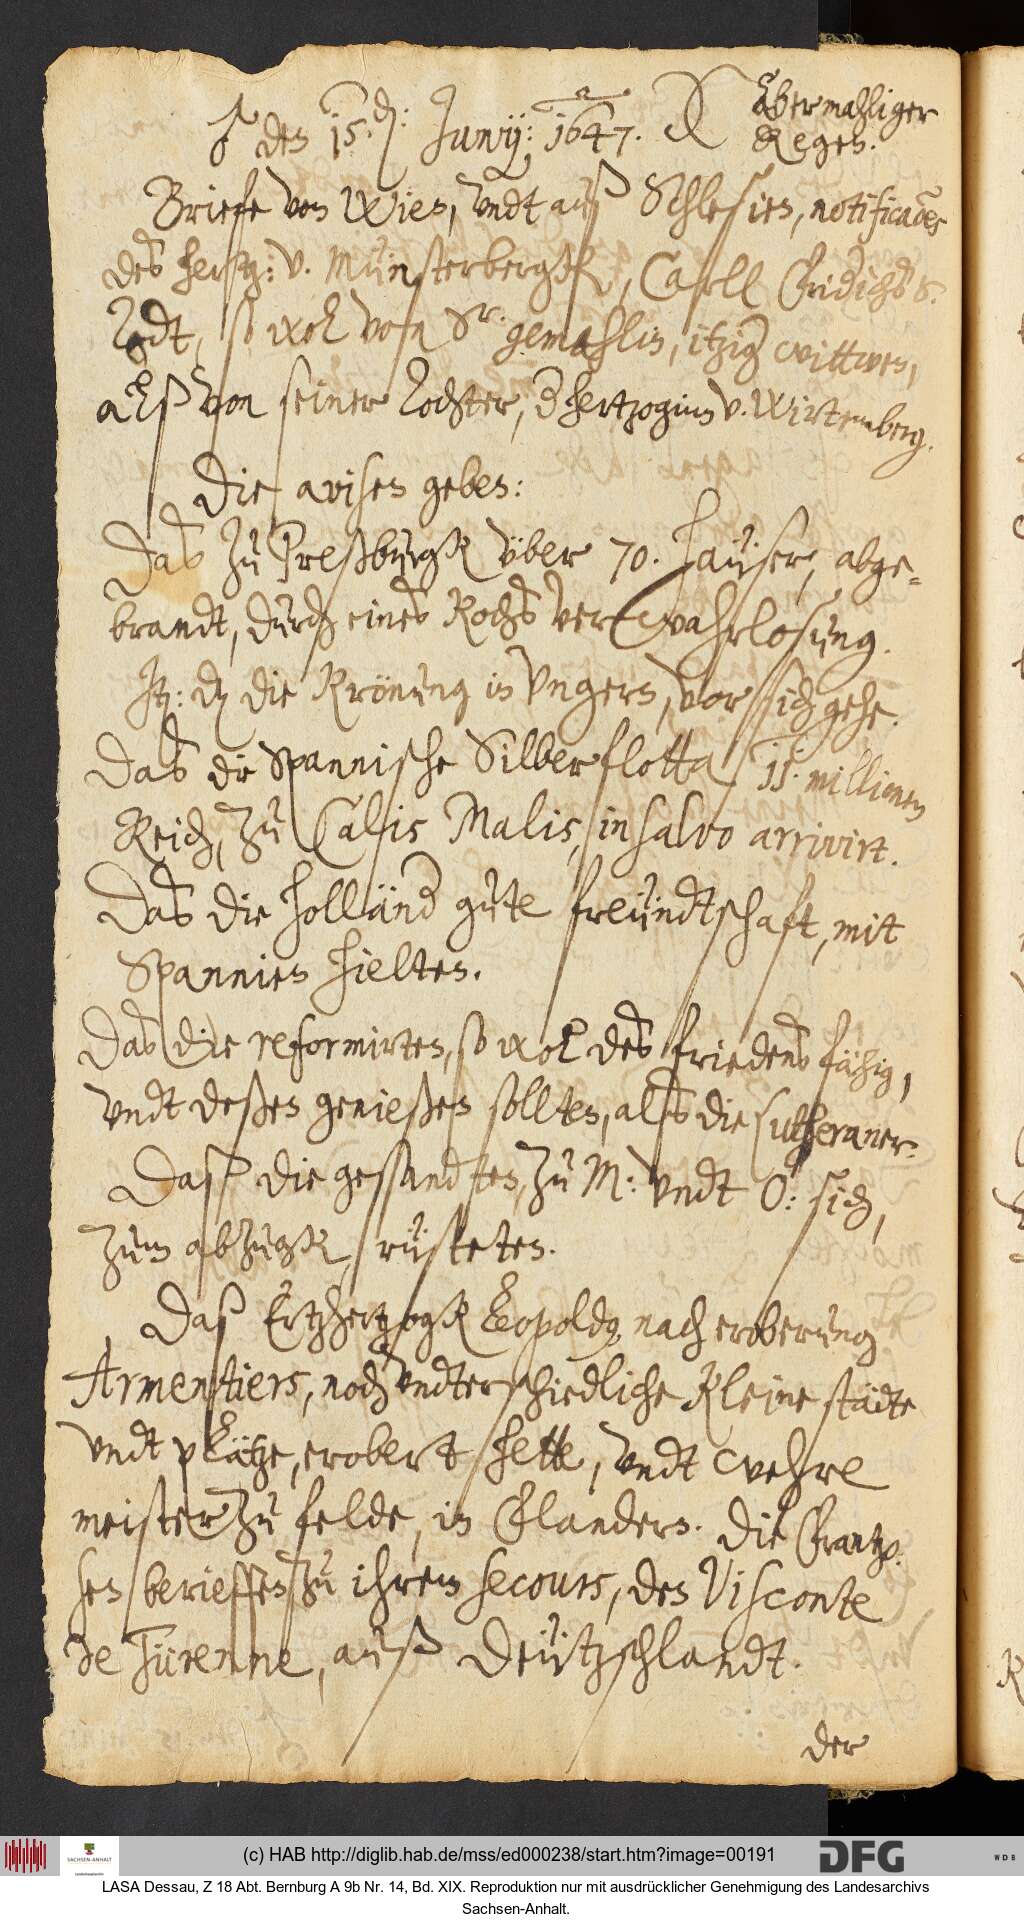 ♂ den 15.d: Junij: 1647.
Abermahliger
Regen.
Briefe von Wien, undt auß Schlesien, notificando
des hertz: v. Münsterbergk, Carll Fridichs S.
Todt, so wol von Sr. gemahlin, itzig wittwen,
alß von seiner Tochter, d hertzoginn v. Wirtemberg.
Die avisen geben:
Das zu Preßburgk über 70. häuser, abge-
brandt, durch eines Kochs verwahrlosung.
It: dz die Krönung in Ungern, vor sich gehe.
Das die Spannische Silberflotta 15. millionen
Reich, zu Calis Malis, in salvo arrivirt.
Das die Holländ gute freündtschaft, mit
Spannien hielten.
Das die reformirten, so wol des friedens fähig,
undt deßen genießen sollten, als die Lutheraner.
Daß die gesandten, zu M: undt O: sich,
zum abzugk, rüsteten.
Daß Ertzhertzogk Leopold, nach eroberung
Armentiers, noch undterschiedliche Kleine städte
undt plätze, erobert hette, undt wehre
meister zu felde, in Flandern. Die Frantzo.
sen berieffen zu ihrem secours, den Visconte
de Türenne, auß Deützschlandt.
der
(c) HAB http://diglib.hab.de/mss/ed000238/start.htm?image=00191
SACHSEN-ANHALT
DFG
WDB
LASA Dessau, Z 18 Abt. Bernburg A 9b Nr. 14, Bd. XIX. Reproduktion nur mit ausdrücklicher Genehmigung des Landesarchivs
Sachsen-Anhalt.